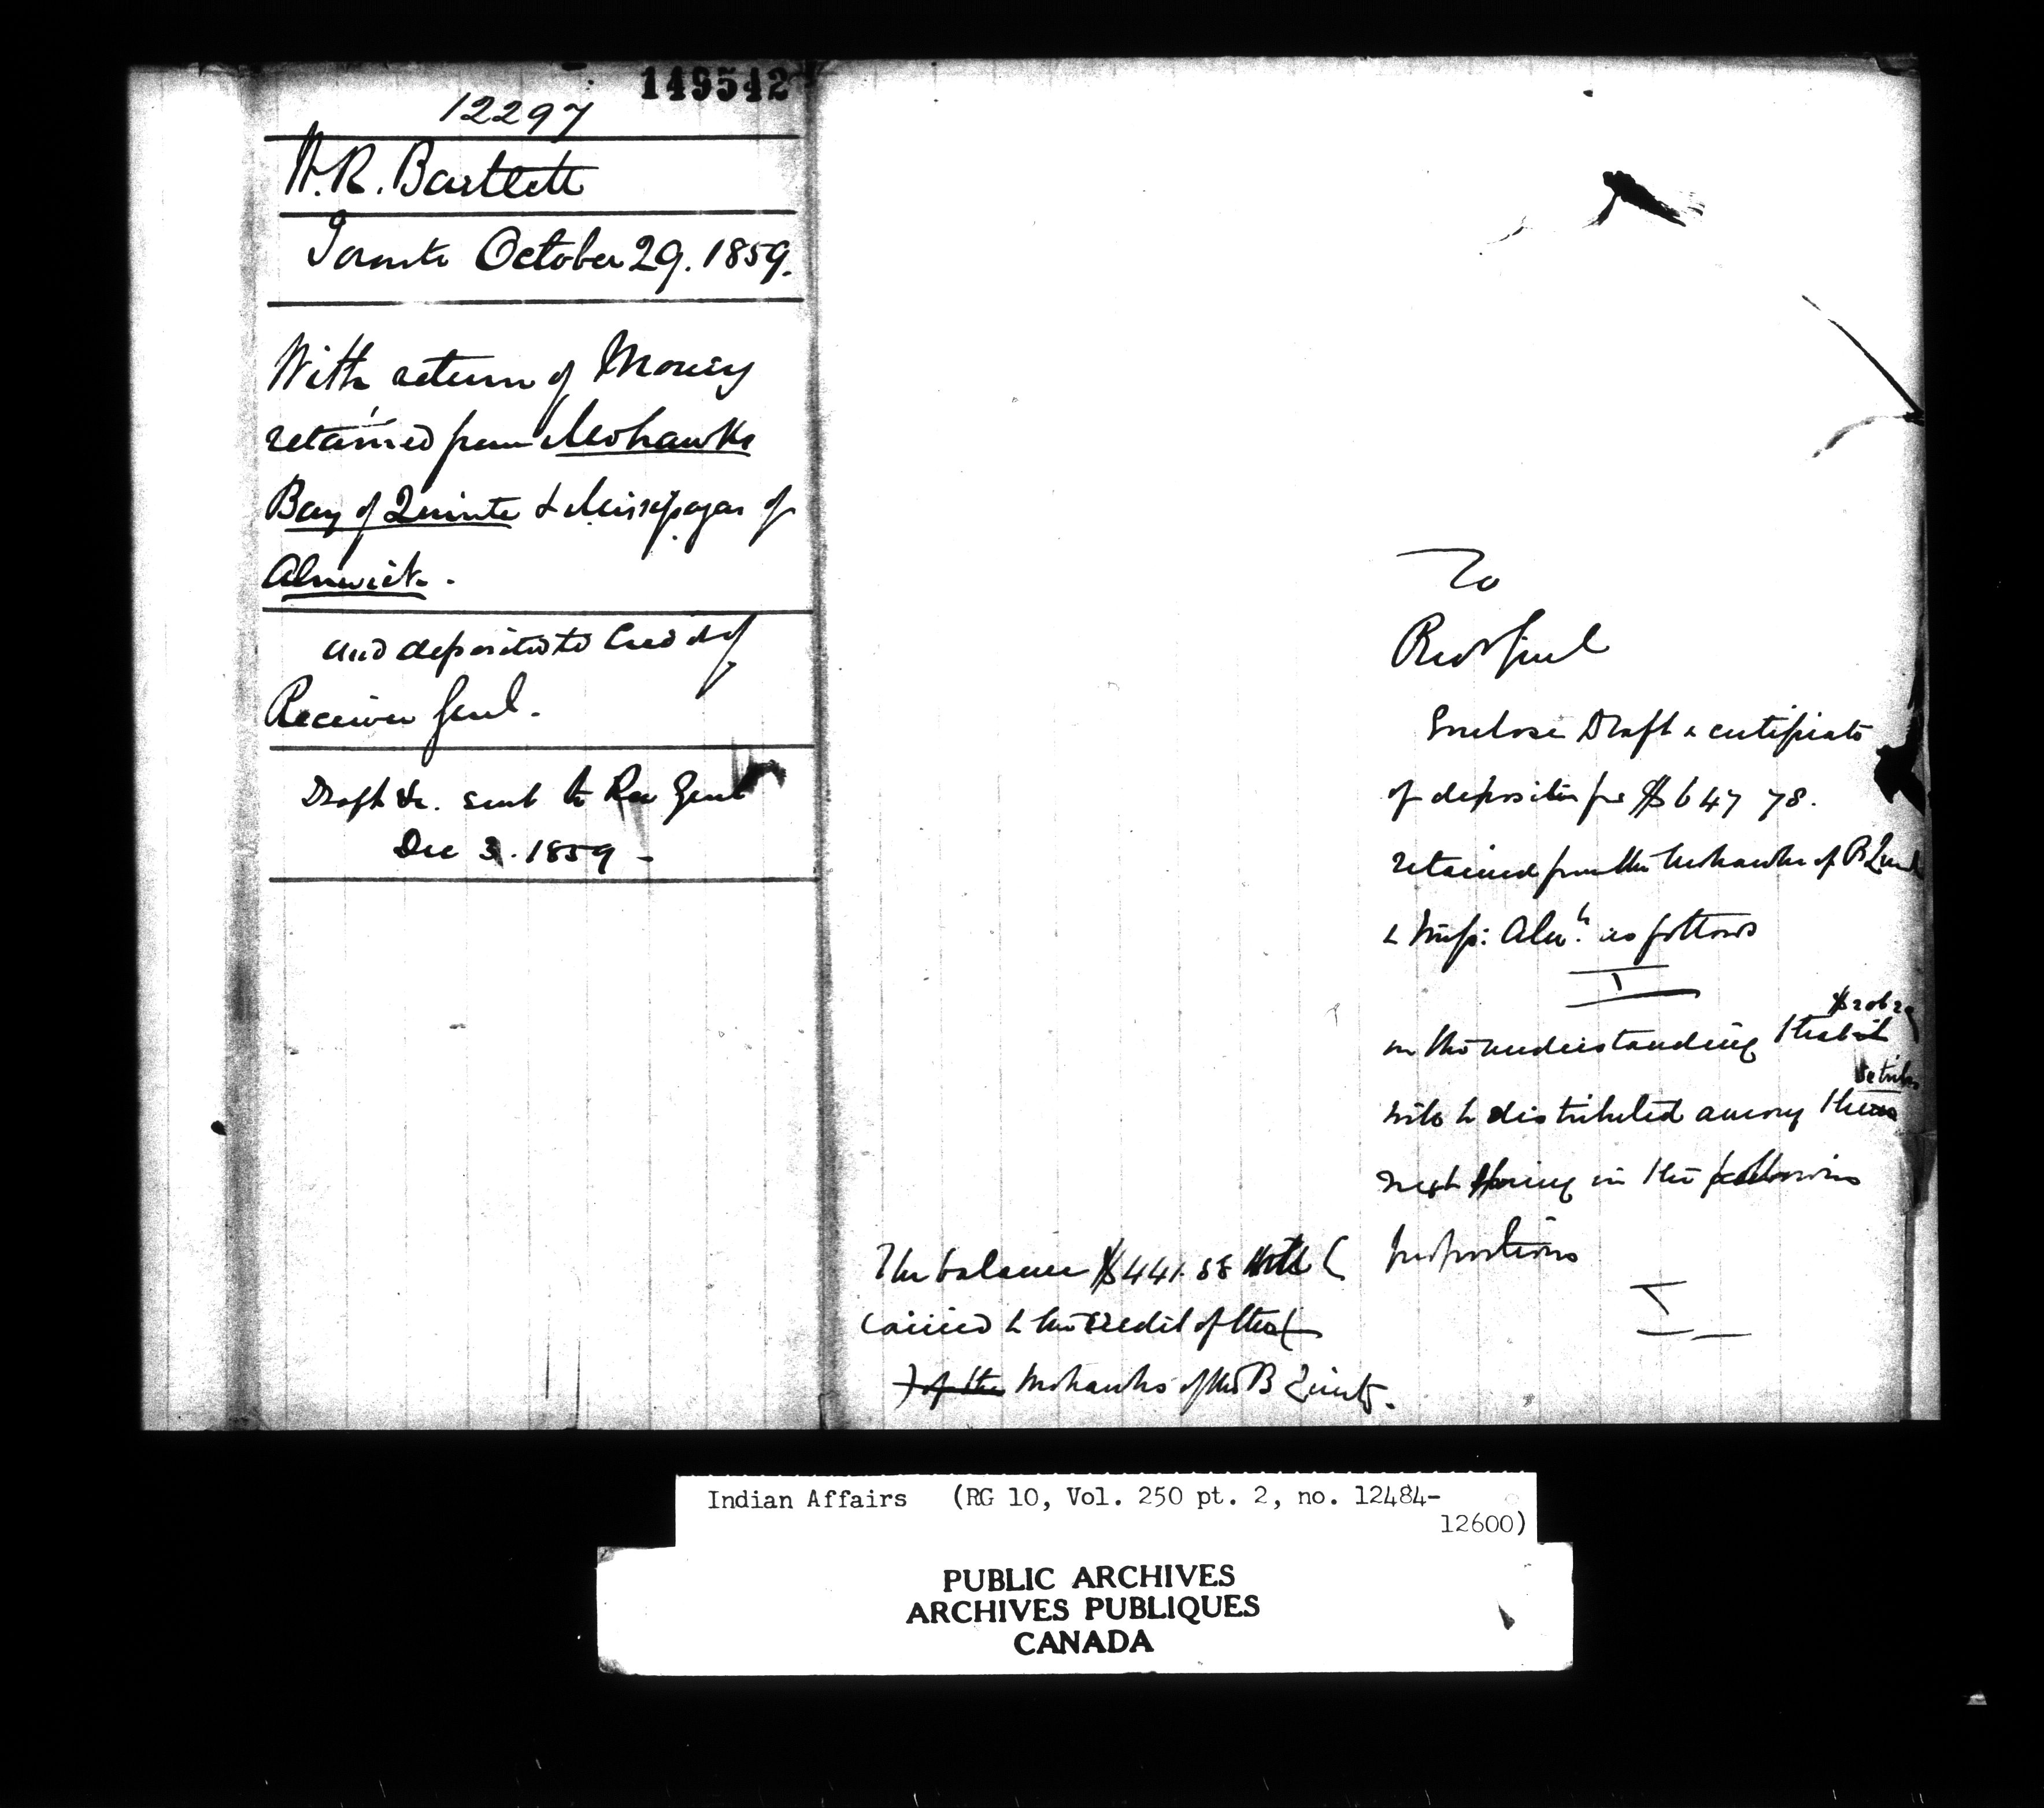 149542
12297
W.R. Bartlett
Toronto October 29. 1859.
With return of Money
retained from Mohawks
Bay of Quinte & Missisagas of
Alnwick.
and deposited to Credit of
Receiver Genl.
Draft &c. sent to Rec Genl
Dec 3. 1859 -
To
Rec Genl
Enclose Draft & certificate
of deposit for $647 78.
retained from the Mohawks of B Quint
& Miss: Alnk. as follows
I
$206 29
on the understanding that it
will be distributed among them
next Spring in the following
proportions
I
The balance $441.58 to be
carried to the credit of the
of the Mohawks of the B Quinte.
Indian Affairs (RG 10, Vol. 250 pt. 2, no. 12484-
12600)
PUBLIC ARCHIVES
ARCHIVES PUBLIQUES
CANADA